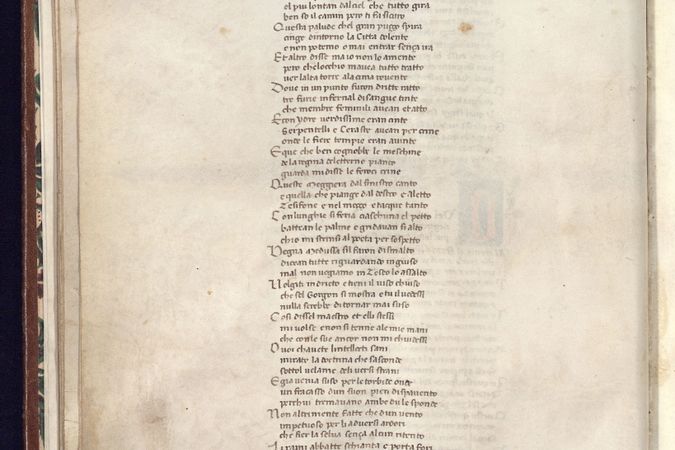 el piu lontan dalciel che tutto gira
ben so il camin pero ti fa sicuro
Questa palude chel gran puzo spira
cinge dintorno la Citta dolente
e non potemo o mai entrar sença ira
Et altro disse ma io non lo amente
pero che locchio mavea tutto tratto
ver lalta torre ala cima rovente
Dove in un punto furon dritte ratto
tre furie infernal di sangue tinte
che membre feminili avean et atto
Et con ydre verdissime eran cinte
Serpentelli e Ceraste avean per crine
onde le fiere tempie eran avinte
E que che ben cognobbe le meschine
de la regina deletterno pianto
guarda mi disse le feroci erine
Queste Meggiera dal sinistro canto
e quella che piange dal destro e Aletto
Tesifone e nel mezzo e tacque tanto
Con lunghie si feria ciaschuna el petto
battean le palme e gridavan si alto
chio mi strinsi al poeta per sospetto
Vegna Medussa sil faron di smalto
dicean tutte riguardando in giuso
mal non vegiamo in Teseo lo assalto
Volgiti indrieto e tieni il viso chiuso
che sel Gorgon si mostra e tu il vedessi
nulla serebbe di tornar mai suso
Cosi dissel maestro et elli stessi
mi volse e non si tenne ale mie mani
che con le sue ancor non mi chiudessi
O voi chavete lintelletti sani
mirate la dottrina che sasconde
sottol velame deli versi strani
E gia venia suso per le torbide onde
un fracasso dun suon pien di spavento
per chui tremavano ambe du le sponde
Non altrimente fatte che dun vento
impetuoso per li adversi ardori
che fier la selva sença alcun ritento
Li rami abbatte schianta e porta fori